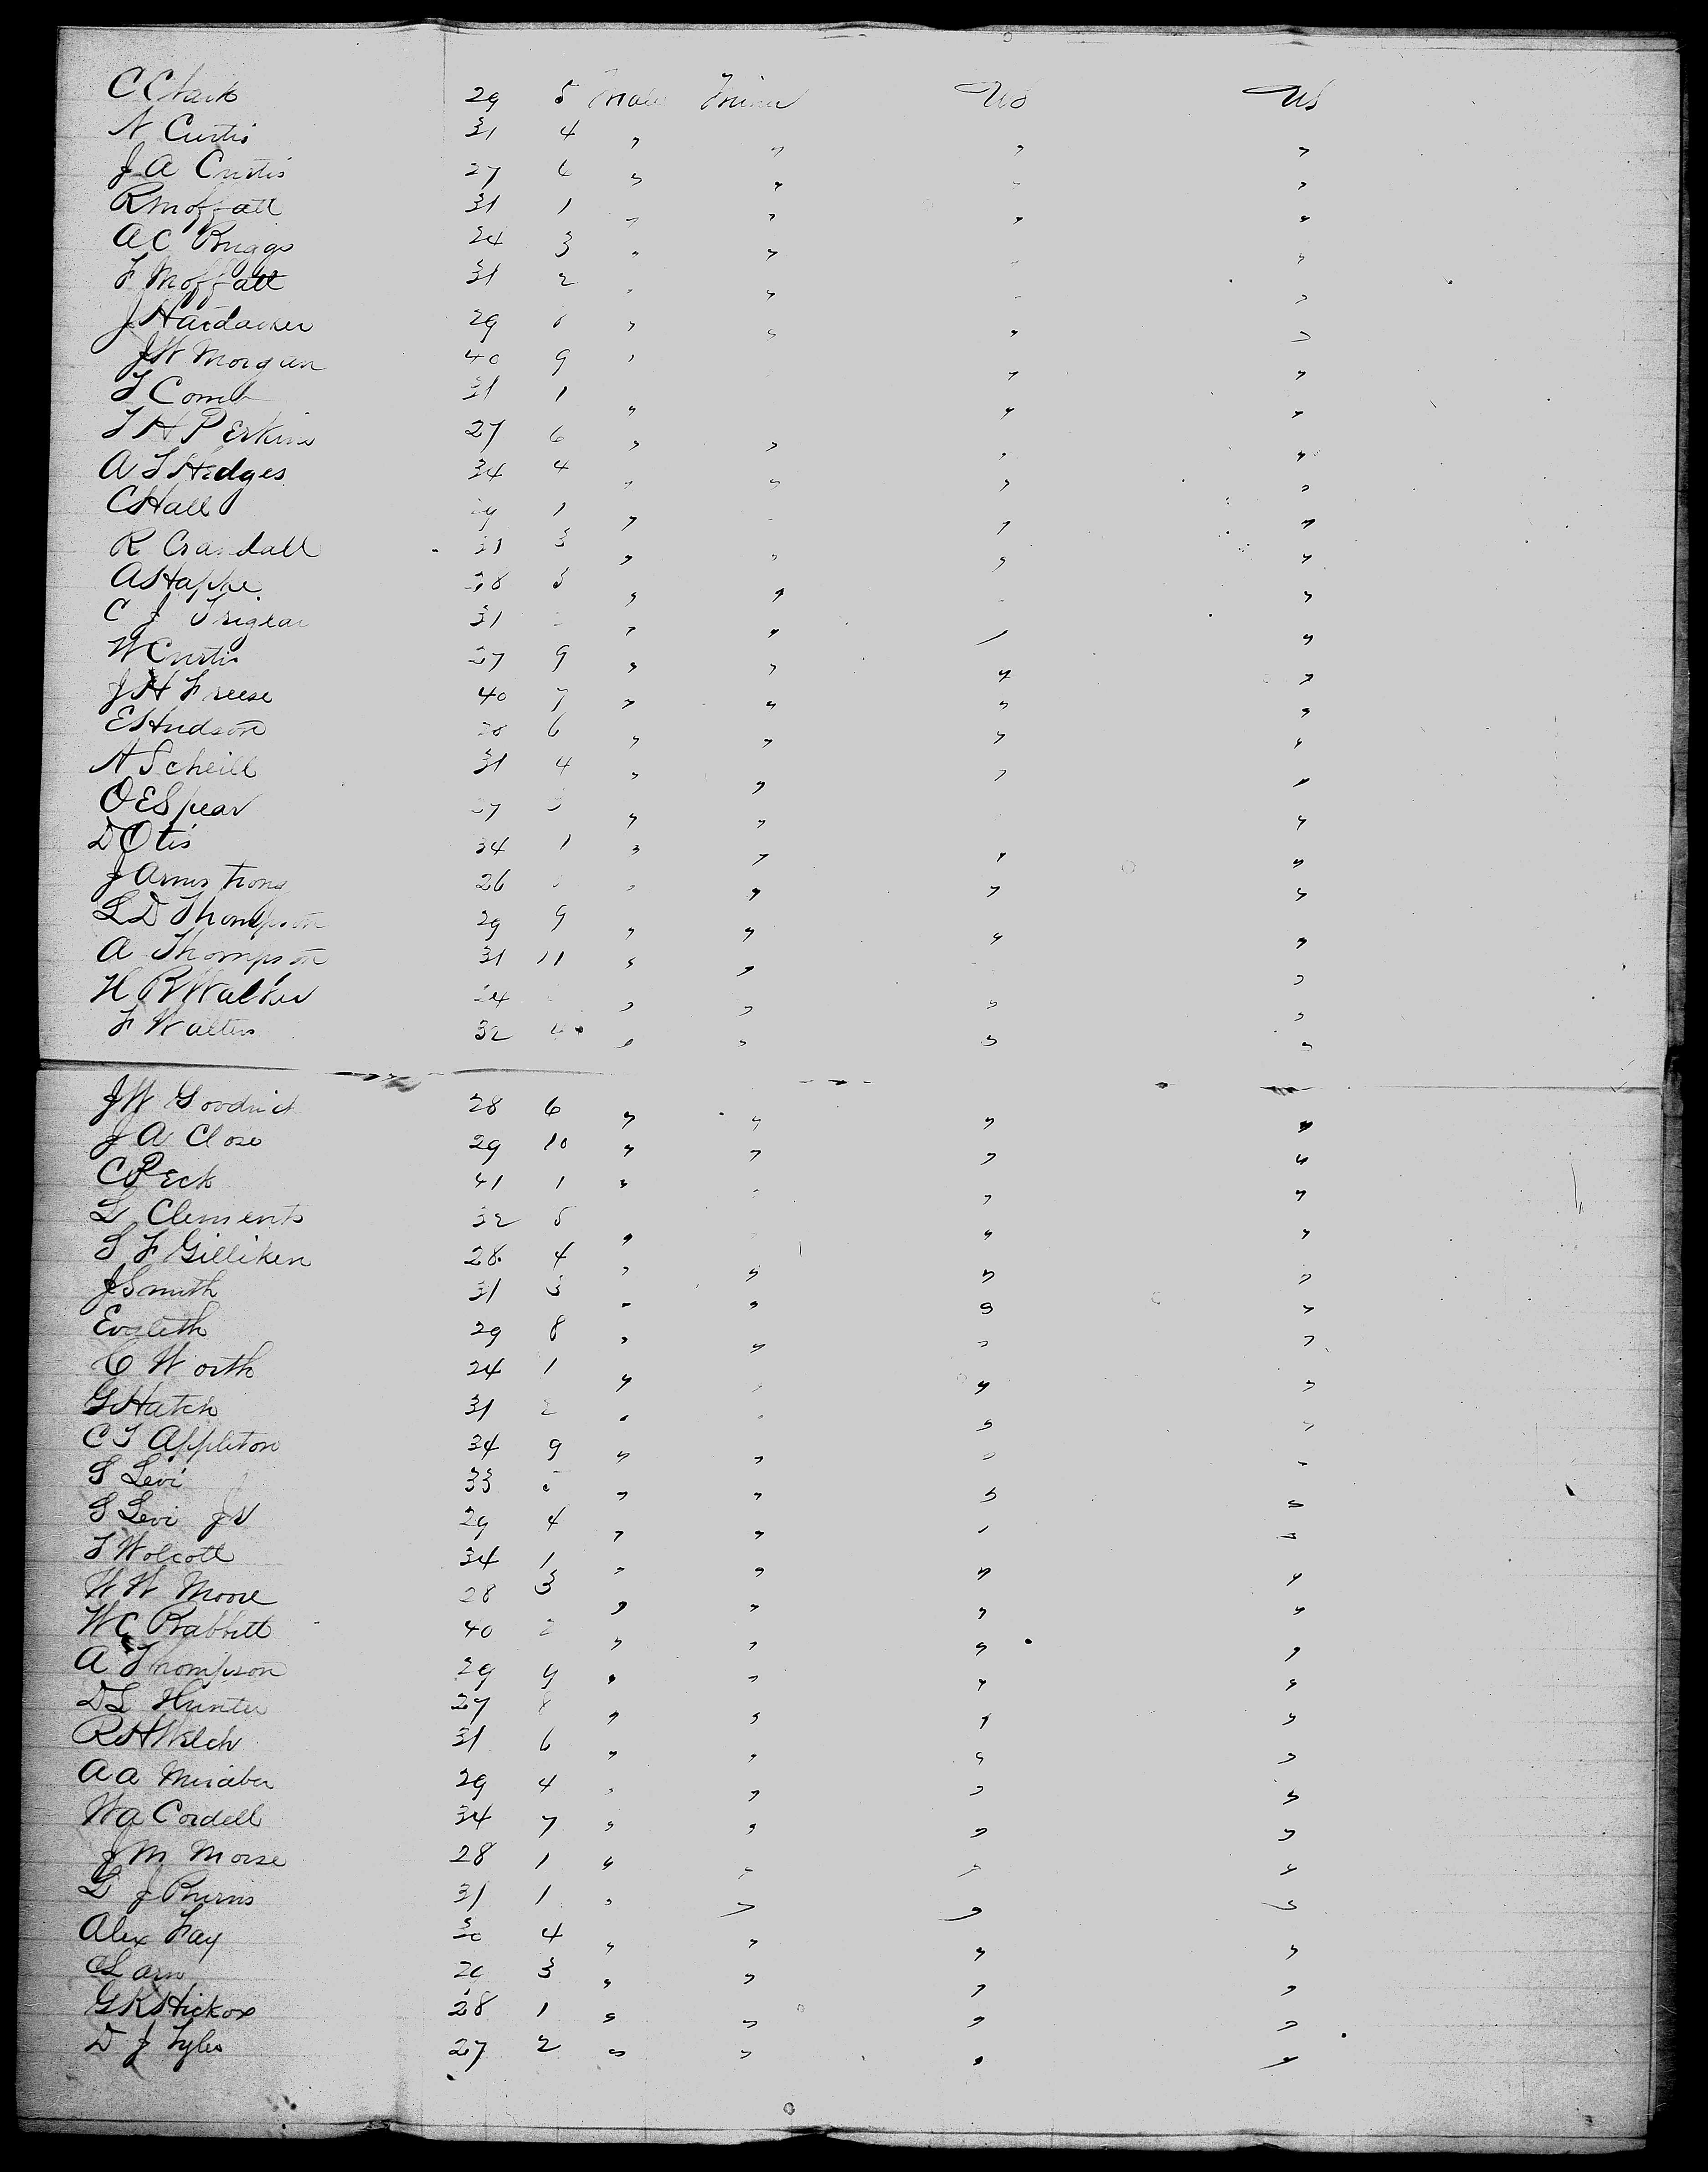 C Clark 29 5 Male Miner US US
N Curtis 31 4 " " " "
J A Curtis 27 6 " " " "
R Moffatt 31 1 " " " "
A C Briggs 24 3 " " "
F Moffatt 31 2 " " " "
J Hardacker 29 " " " "
J W Morgan 40 9 " " "
T Comb 31 1 " " "
T H Perkins 27 6 " " " "
A T Hedges 34 4 " " " "
C Hall 1 " " " "
R Crandall 31 3 " " " "
A 28 3 " " " "
C J 31 " " " "
W Curtis 27 9 " " " "
J H Freese 40 7 " " " "
E Hudson 28 6 " " " "
N Scheill 31 4 " " " "
O E Spear 27 3 " " "
D Otis 34 1 " " " "
J Armstrong 26 " " " "
L D Thompson 29 9 " " " "
A Thompson 31 11 " " "
H R Walker 24 " " " "
F Walters 32 4 " " " "
J W Goodrich 28 6 " " " "
J A Close 29 10 " " " "
C Peck 41 1 " " " "
L Clements 32 5 " " "
S F Gilliken 28 4 " " " "
J Smith 31 3 " " " "
Evaleth 29 8 " " " "
C Worth 24 1 " " " "
G Hatch 31 2 " " " "
C T Appleton 34 9 " " " "
S Levi 33 " " " "
S Levi Jr 29 4 " " " "
T Wolcott 34 1 " " " "
W W Moore 28 3 " " " "
W C Babbitt 40 2 " " " "
A Thompson 29 9 " " " "
D L Hunter 27 8 " " " "
R H Welch 31 6 " " " "
A A 29 4 " " " "
W A Cordell 34 7 " " " "
J M Morse 28 1 " " " "
L J Burns 31 1 " " " "
Alex Fay 30 4 " " " "
C Larn 20 3 " " " "
G R Hickox 28 1 " " " "
D J Tyler 27 2 " " " "